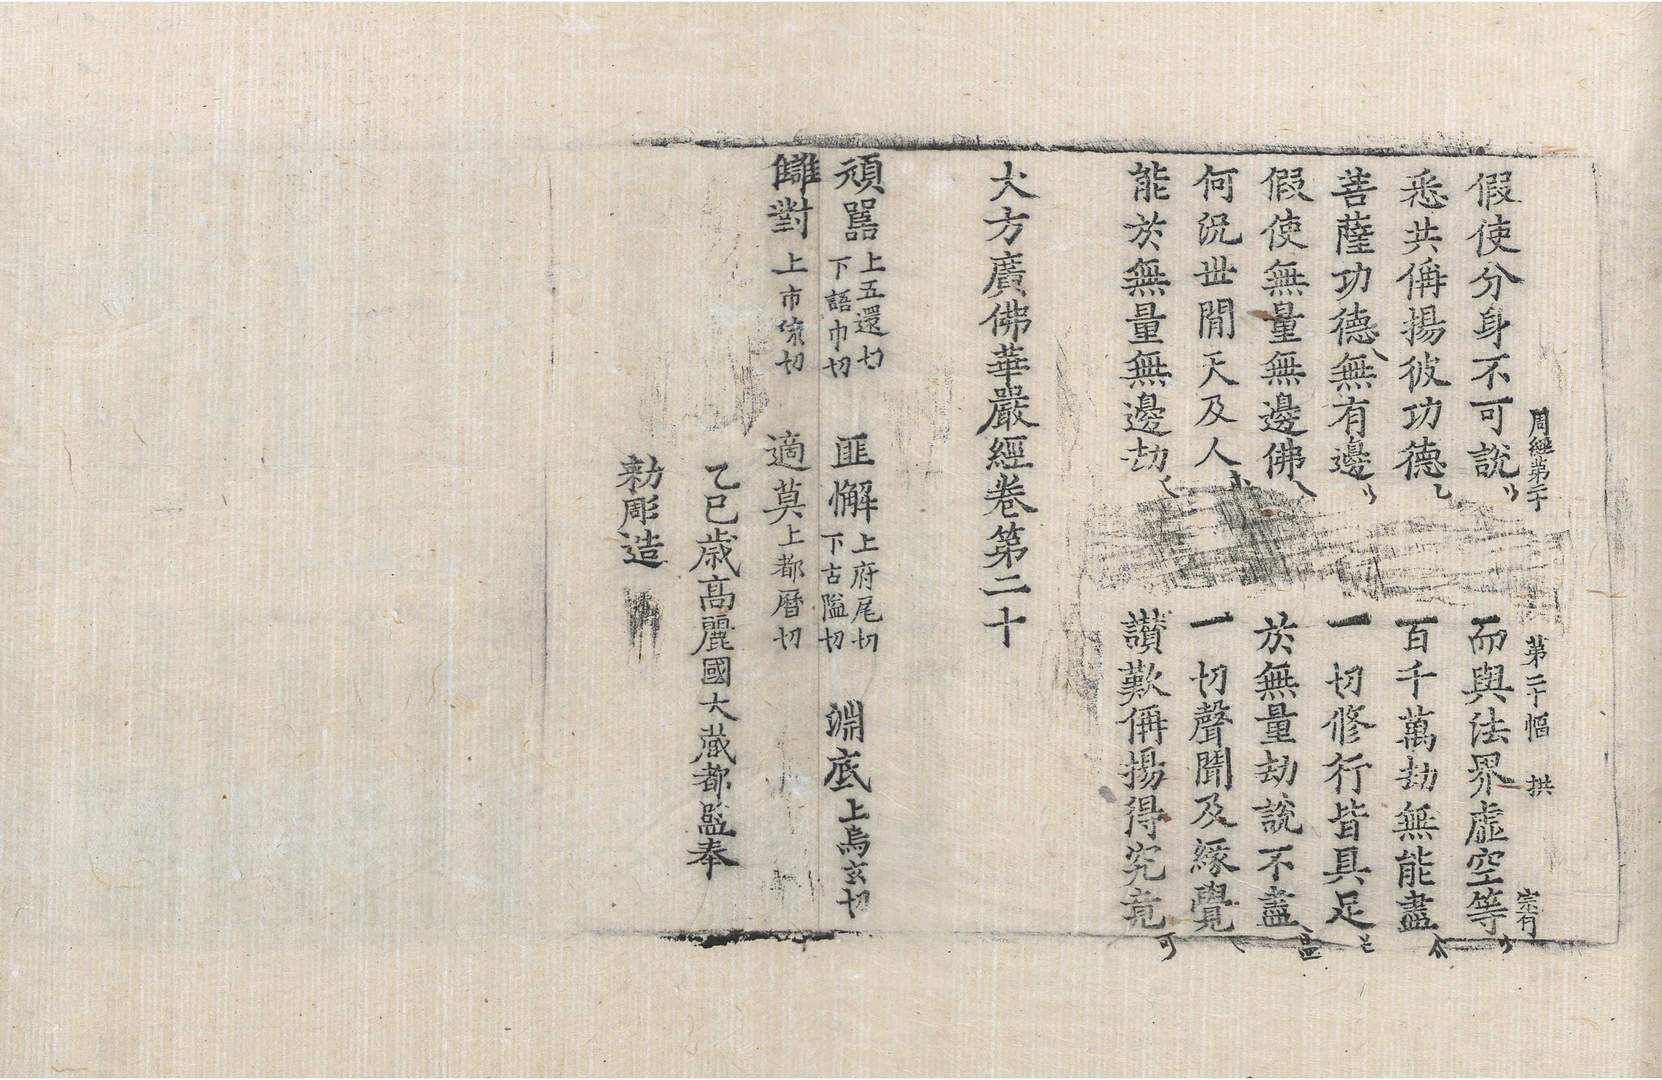 周經第二十　第二十幅　拱　宗有
假使分身不可說　而與法界虛空等
悉共偁揚彼功德　百千萬劫無能盡
菩薩功德無有邊　一切修行皆具足
假使無量無邊佛　於無量劫說不盡
何況世間天及人　一切聲聞及緣覺
能於無量無邊劫　讃歎偁揚得究竟
大方廣佛華嚴經卷第二十
頑嚚上五還切下語巾切　匪懈上府尾切下古隘切　淵底上烏玄切
讎對上市流切　適莫上都曆切
乙巳歲高麗國大藏都監奉
勑彫造